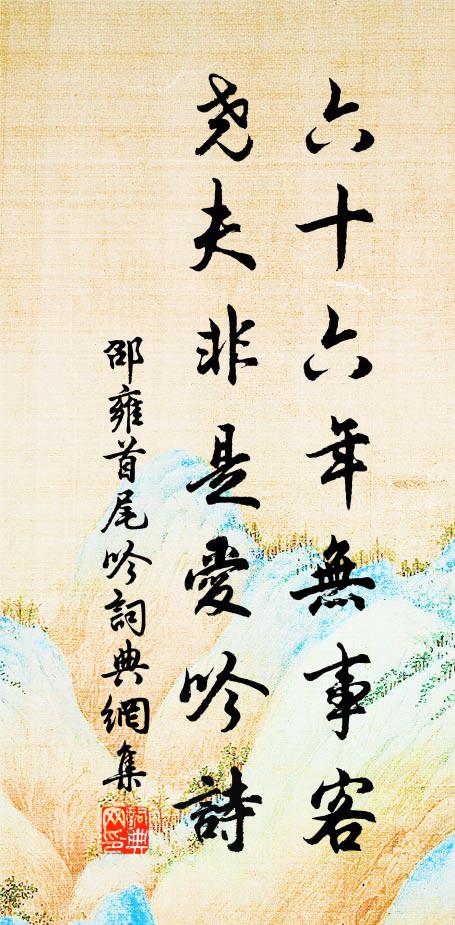 六十六年無事客
尧夫非是愛吟詩
邵雍首尾吟詞典網集
詞典網印